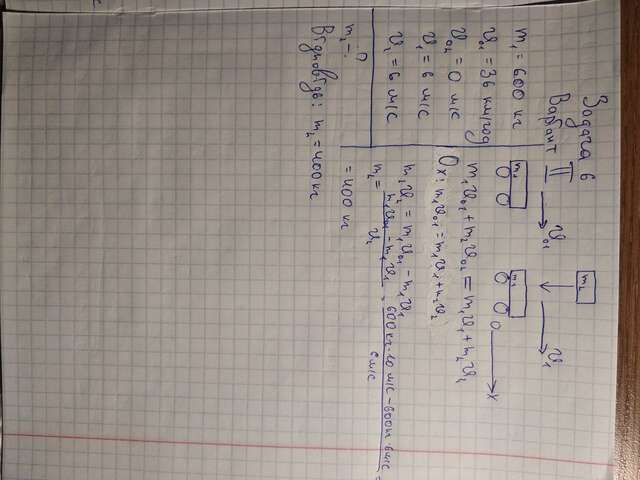 Задача 6
Варіант II
m₁ = 600 кг
υ₀₁ = 36 км/год
υ₀₂ = 0 м/с
υ₁ = 6 м/с
υ₂ = 6 м/с
m₂ - ?
m₁ υ₀₁
m₂ m₁ υ₁
O x
m₁υ₀₁ + m₂υ₀₂ = m₁υ₁ + m₂υ₂
Ox: m₁υ₀₁ = m₁υ₁ + m₂υ₂
m₂υ₂ = m₁υ₀₁ - m₁υ₁
m₂ = (m₁υ₀₁ - m₁υ₁) / υ₂ = (600 кг · 10 м/с - 600 кг · 6 м/с) / 6 м/с =
= 400 кг
Відповідь: m₂ = 400 кг